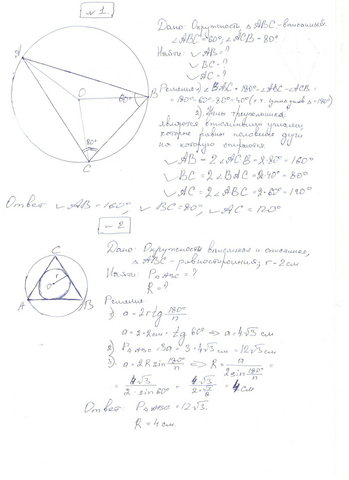 № 1
Дано: Окружность, △ABC-вписанный
∠ABC=60°, ∠ACB=80°
Найти: ◡AB=?
◡BC=?
◡AC=?
Решение: 1) ∠BAC=180°-∠ABC-∠ACB=
=180°-60°-80°=40° (т.к. сумма углов △=180°)
2) Углы треугольника
являются вписанными углами,
которые равны половине дуги
на которую опираются
◡AB=2∠ACB=2·80°=160°
◡BC=2∠BAC=2·40°=80°
◡AC=2∠ABC=2·60°=120°
A
O
60°
B
80°
C
Ответ: ◡AB=160°, ◡BC=80°, ◡AC=120°
№ 2
Дано: Окружность вписанная и описанная,
△ABC-равносторонний; r=2см
Найти: P△ABC=?
R=?
Решение
C
r
O
A
B
1) a=2r tg 180°/n
a=2·2см·tg 60° ⇒ a=4√3 см
2) P△ABC=3a=3·4√3 см=12√3 см
3) a=2R sin 180°/n ⇒ R= a/(2 sin 180°/n)=
= 4√3/(2·sin 60°) = 4√3/(2·√3/2) = 4 см
Ответ: P△ABC=12√3.
R=4 см.